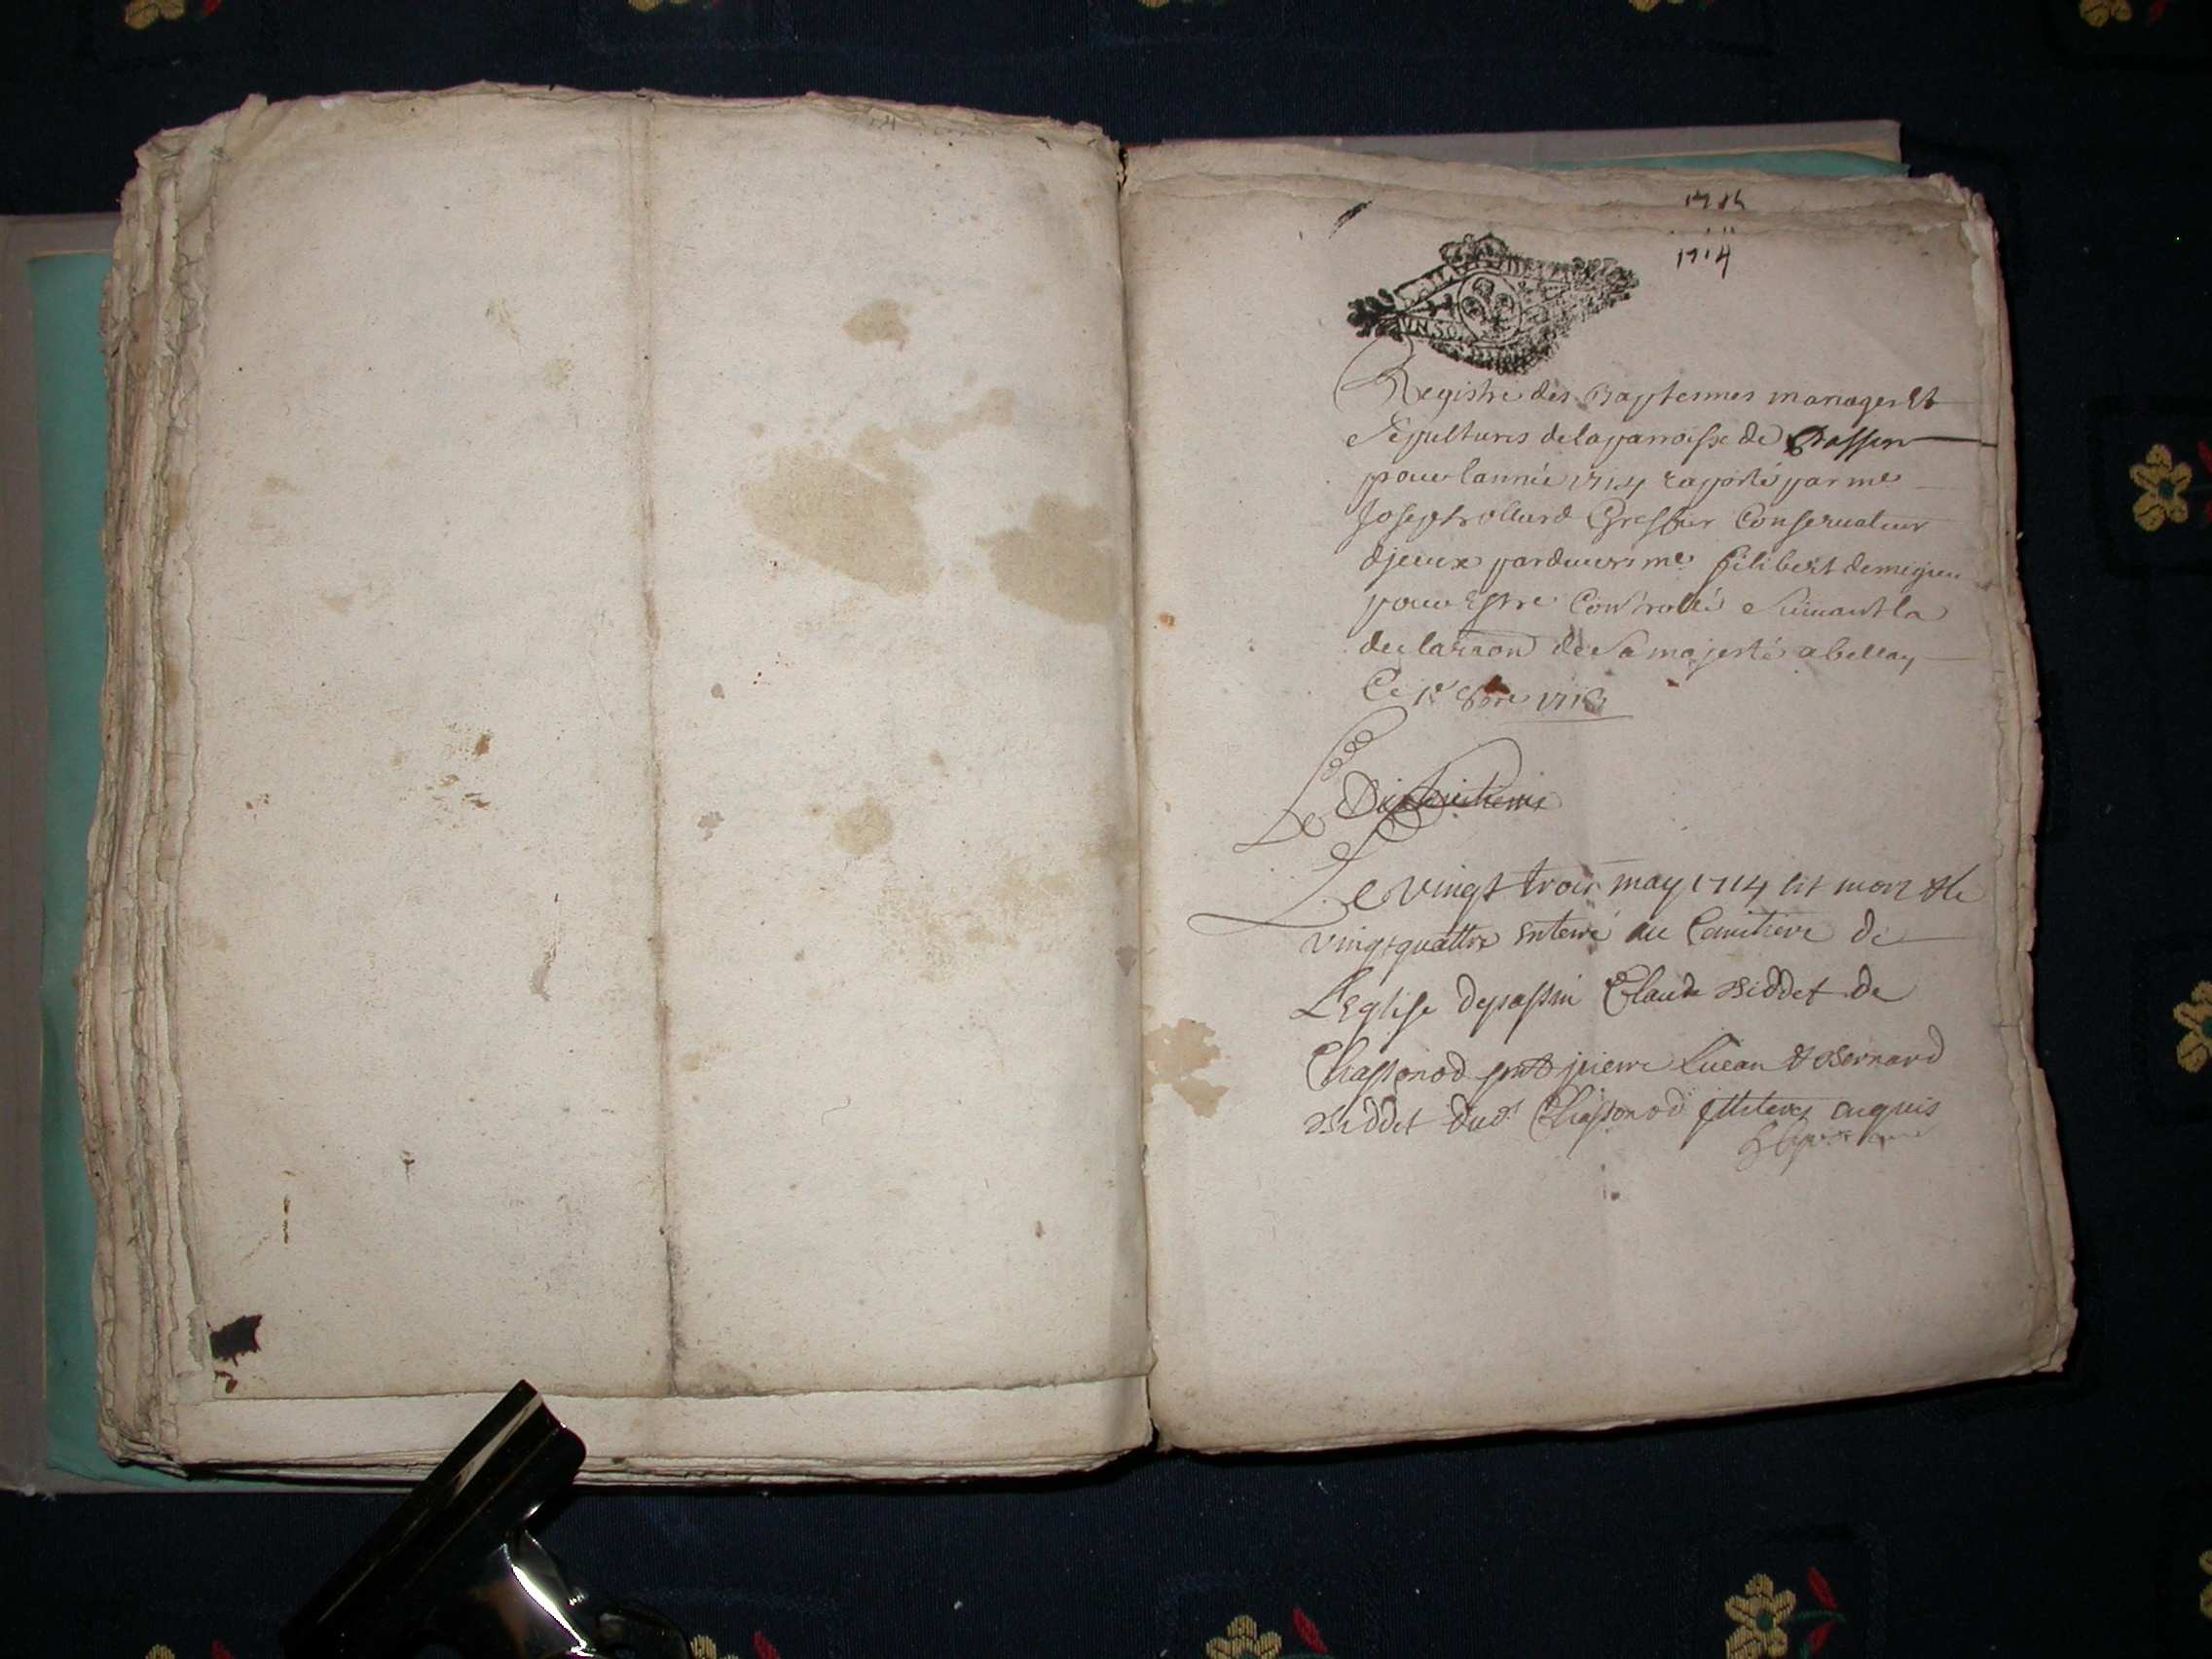 1714
1714
UN SOL
Registre des Baptesmes mariages Et
Sepultures de la parroisse de Passin
pour lannée 1714 raporté par me
Joseph rollard Greffier Conservateur
djceux pardevers me filibert demigieu
pour Estre Controllé Suivant la
declaraon de Sa majesté a bellay
Ce 1r 8bre 1713
Le vingt trois may 1714 est mort & le
vingtquattre enterré au Cemitiere de
L'Eglise depassin Claude Biddet de
Chassonod pnts pierre Lucan & Bernard
Biddet dud. Chassonod illiterez enquis